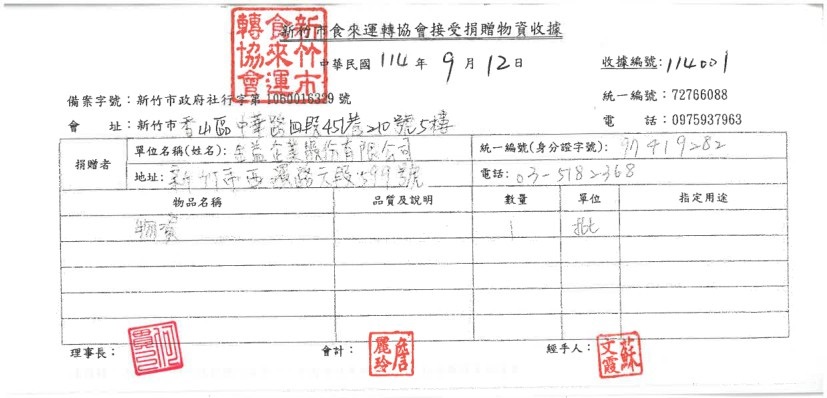 新竹市食來運轉協會接受捐贈物資收據
新竹市食來運轉協會
中華民國 114 年 9 月 12 日
收據編號:114001
備案字號:新竹市政府社行字第1050016329號
統一編號:72766088
會 址:新竹市香山區中華路四段451巷210號5樓
電 話:0975937963
捐贈者
單位名稱(姓名): 金益企業股份有限公司
統一編號(身分證字號): 97419282
地址: 新竹市西濱路六段599號
電話: 03-5182368
物品名稱 品質及說明 數量 單位 指定用途
物資 1 批
理事長: 會計: 詹麗玲 經手人: 蘇文霞